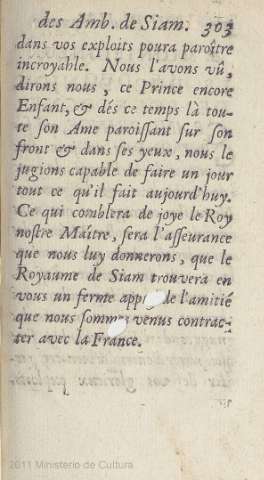 des Amb. de Siam. 303
dans vos exploits poura paroître
incroyable. Nous l'avons vû,
dirons nous, ce Prince encore
Enfant, & dés ce temps là tou-
te son Ame paroissant sur son
front & dans ses yeux, nous le
jugions capable de faire un jour
tout ce qu'il fait aujourd'huy.
Ce qui comblera de joye le Roy
nostre Maître, sera l'asseurance
que nous luy donnerons, que le
Royaume de Siam trouvera en
vous un ferme de l'amitié
que nous sommes venus contrac-
ter avec la France.
2011 Ministerio de Cultura